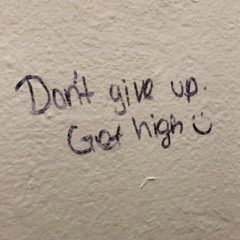 Don't give up.
Get high ☺